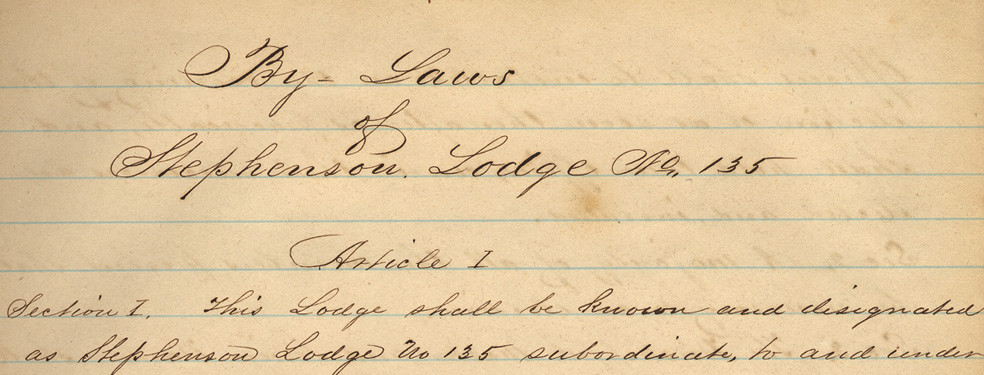 By-Laws
of
Stephenson. Lodge No. 135
Article I
Section I. This Lodge shall be known and designated
as Stephenson Lodge No 135 subordinate, to and under